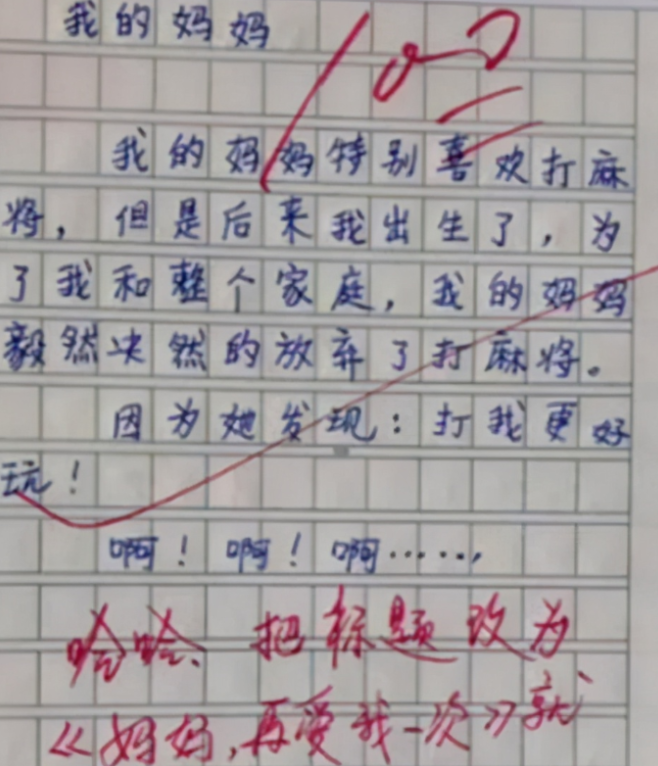 我的妈妈
我的妈妈特别喜欢打麻
将，但是后来我出生了，为
了我和整个家庭，我的妈妈
毅然决然的放弃了打麻将。
因为她发现：打我更好
玩！
啊！啊！啊……，
哈哈、把标题改为
《妈妈，再爱我一次》就